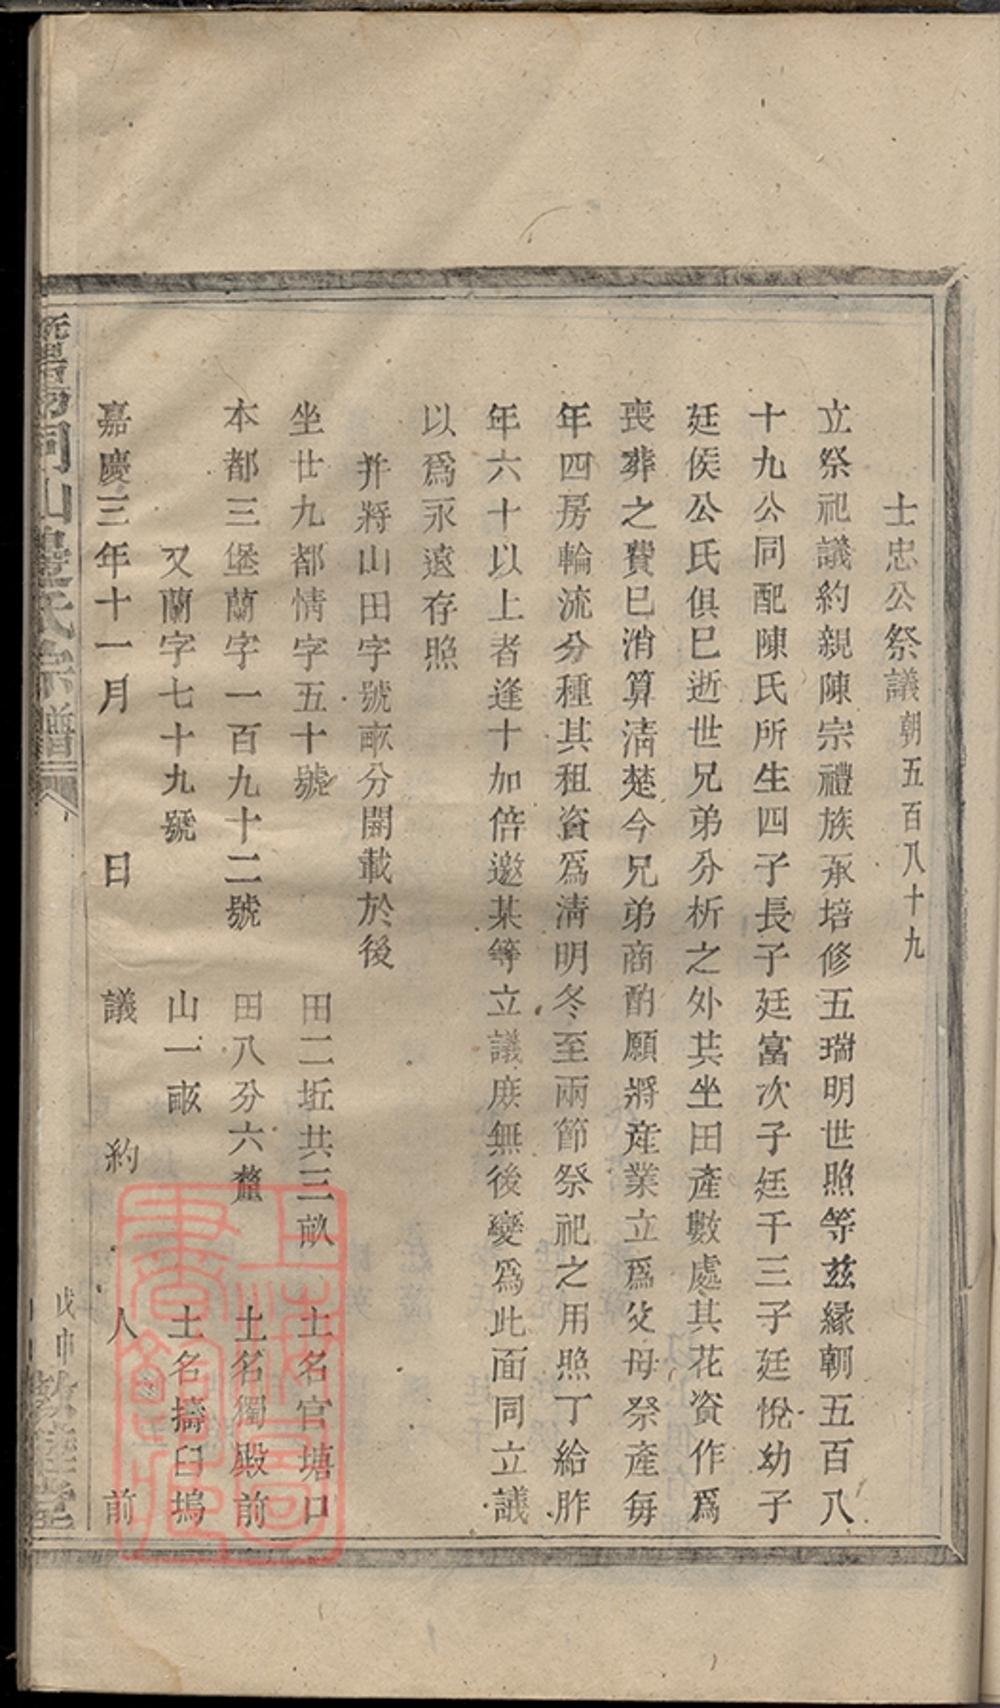 士忠公祭議朝五百八十九
立祭祀議約親陳宗禮族承培修五瑞明世照等茲緣朝五百八
十九公同配陳氏所生四子長子廷富次子廷千三子廷悅幼子
廷侯公氏俱巳逝世兄弟分析之外共坐田產數處其花資作爲
喪葬之費巳消算淸楚今兄弟商酌願將產業立爲父母祭產每
年四房輪流分種其租資爲淸明冬至兩節祭祀之用照丁給胙
年六十以上者逢十加倍邀某等立議庶無後變爲此面同立議
以爲永遠存照
并將山田字號畝分開載於後
坐廿九都情字五十號 田二坵共三畝 土名官塘口
本都三堡蘭字一百九十二號 田八分六釐 土名獨殿前
又蘭字七十九號 山一畝 土名擣臼塢
嘉慶三年十一月 日 議約人 前
山 氏宗譜
戊申
上海圖書館藏